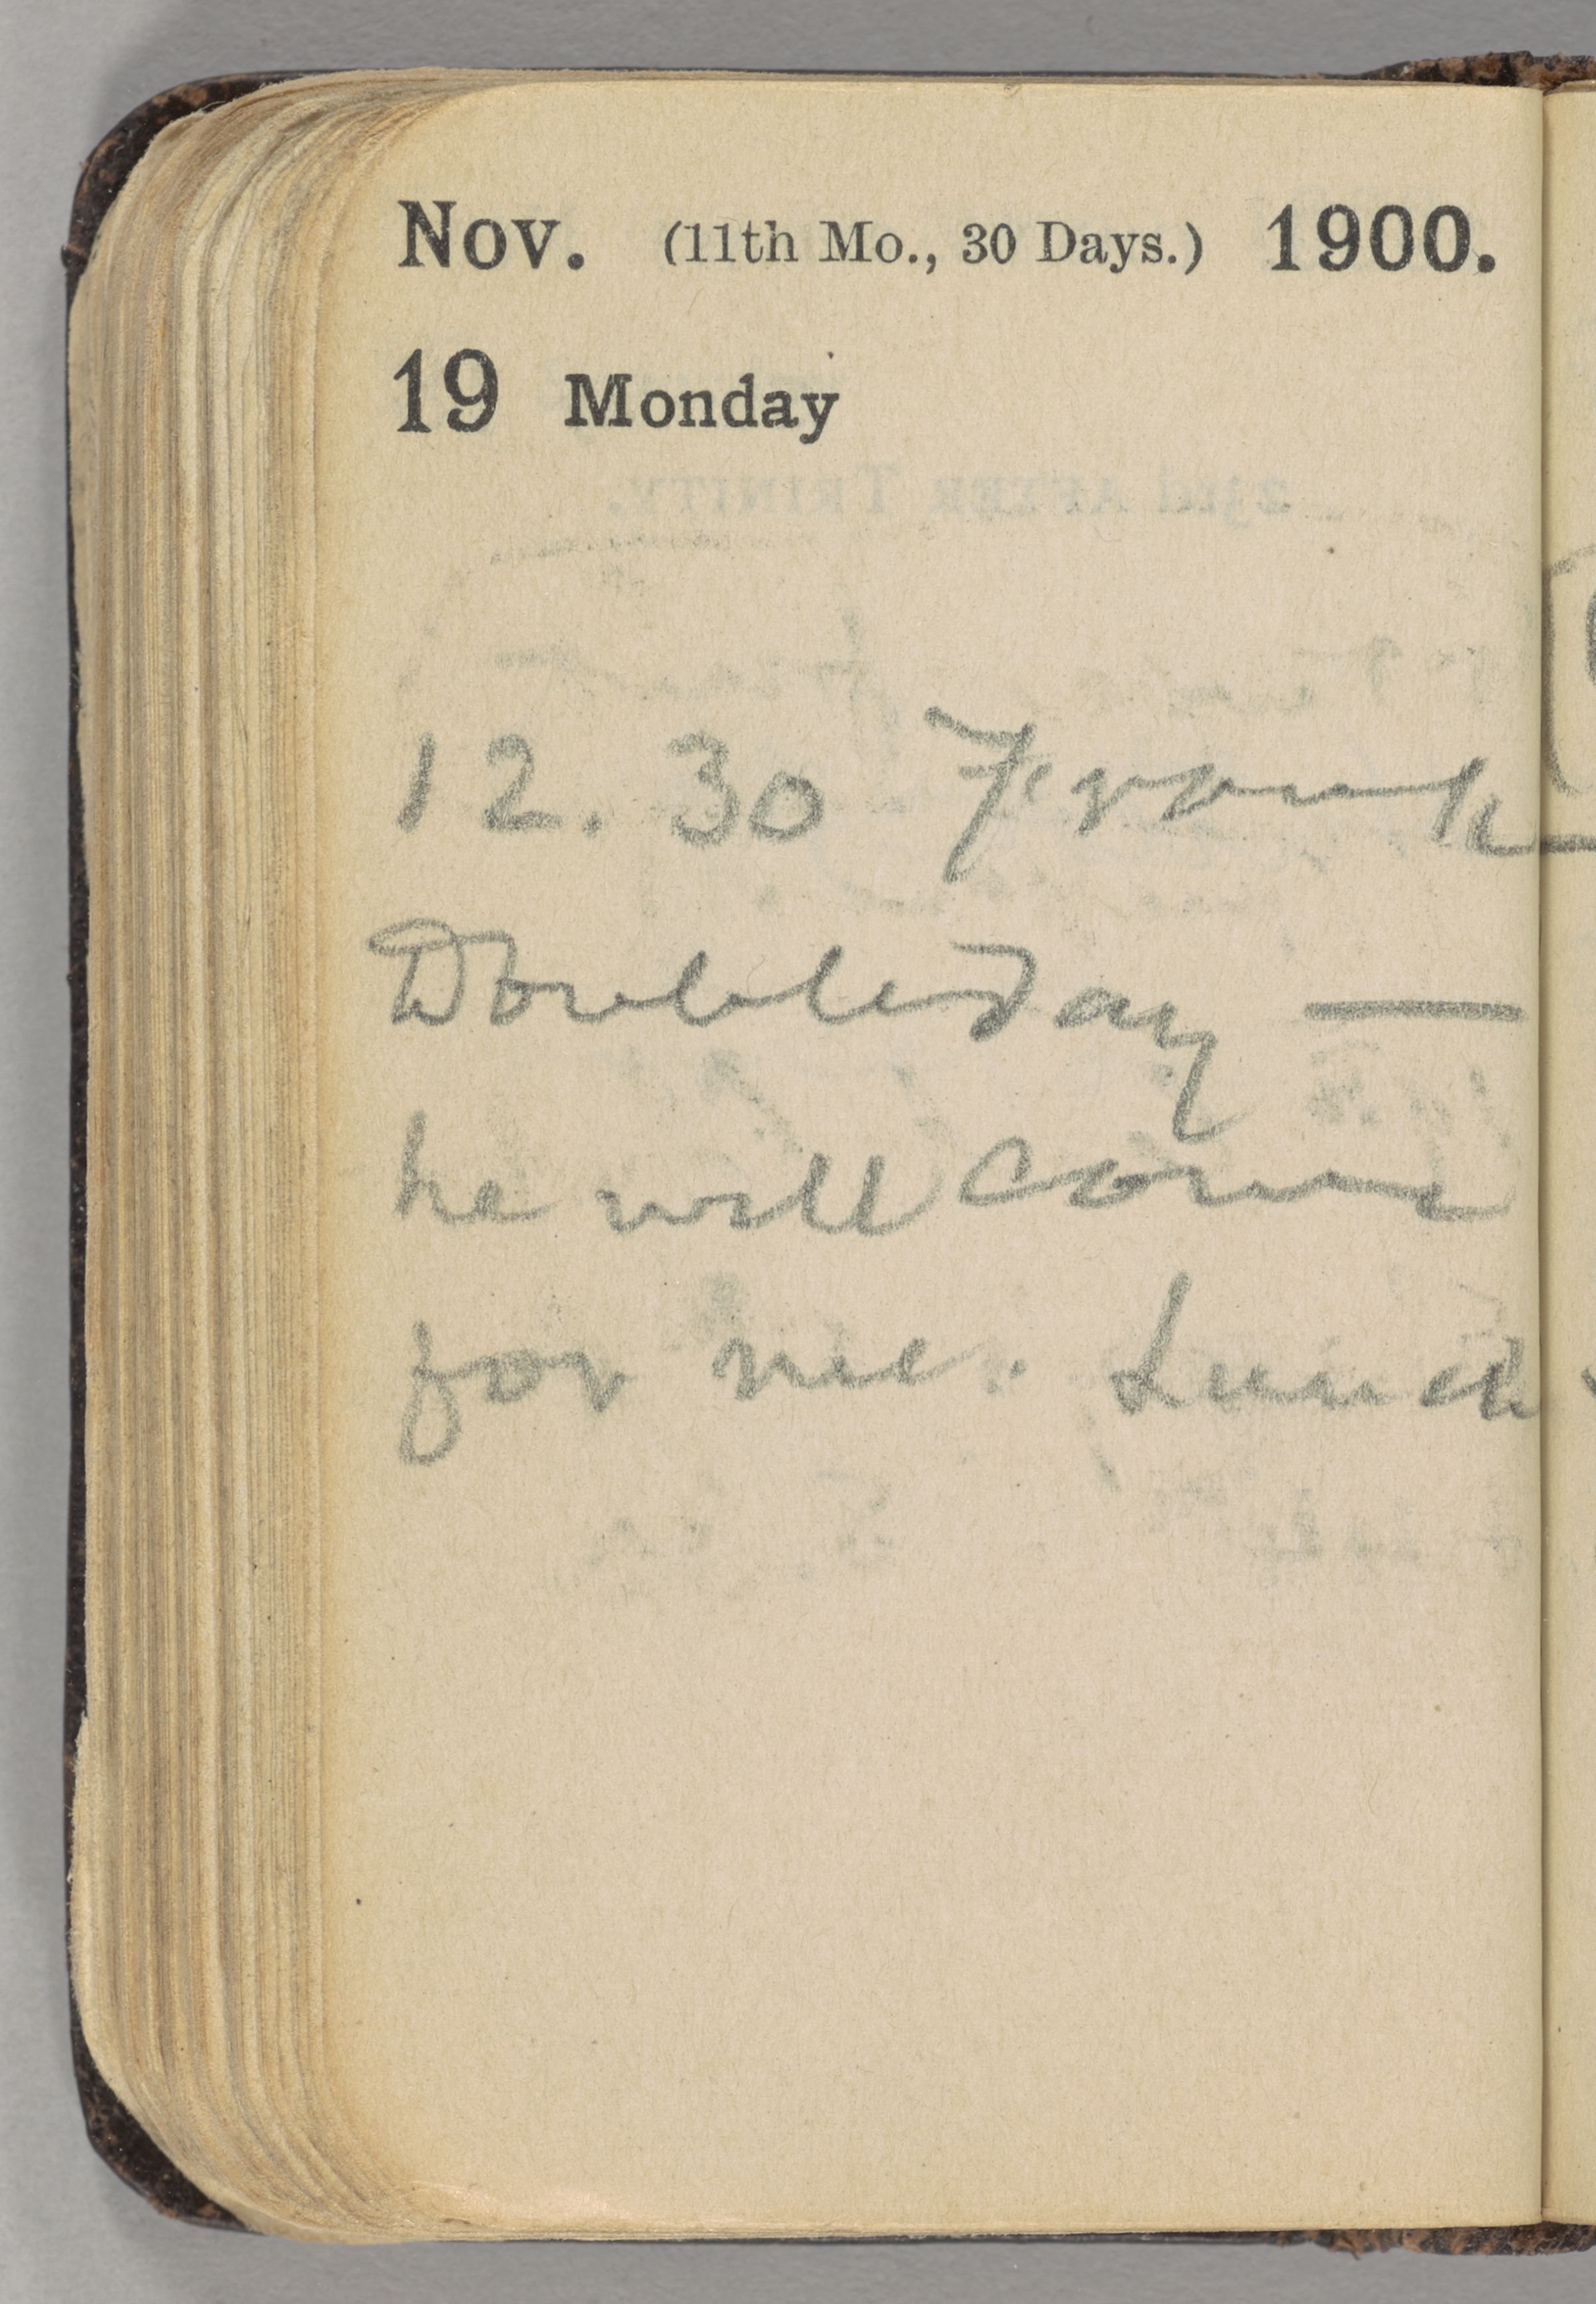 Nov. (11th Mo., 30 Days.) 1900.
19 Monday
23rd AFTER TRINITY.
12.30 Frank
Doubleday —
he will come
for me. Lunch